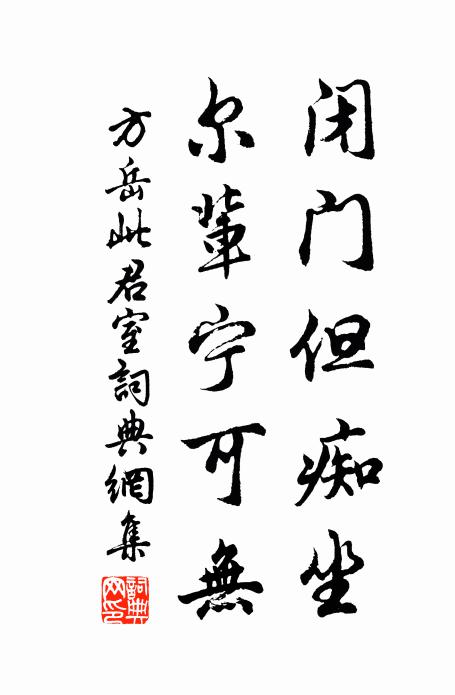 闭门但痴坐
尔輩宁可無
方岳此君室詞典網集
詞典网印